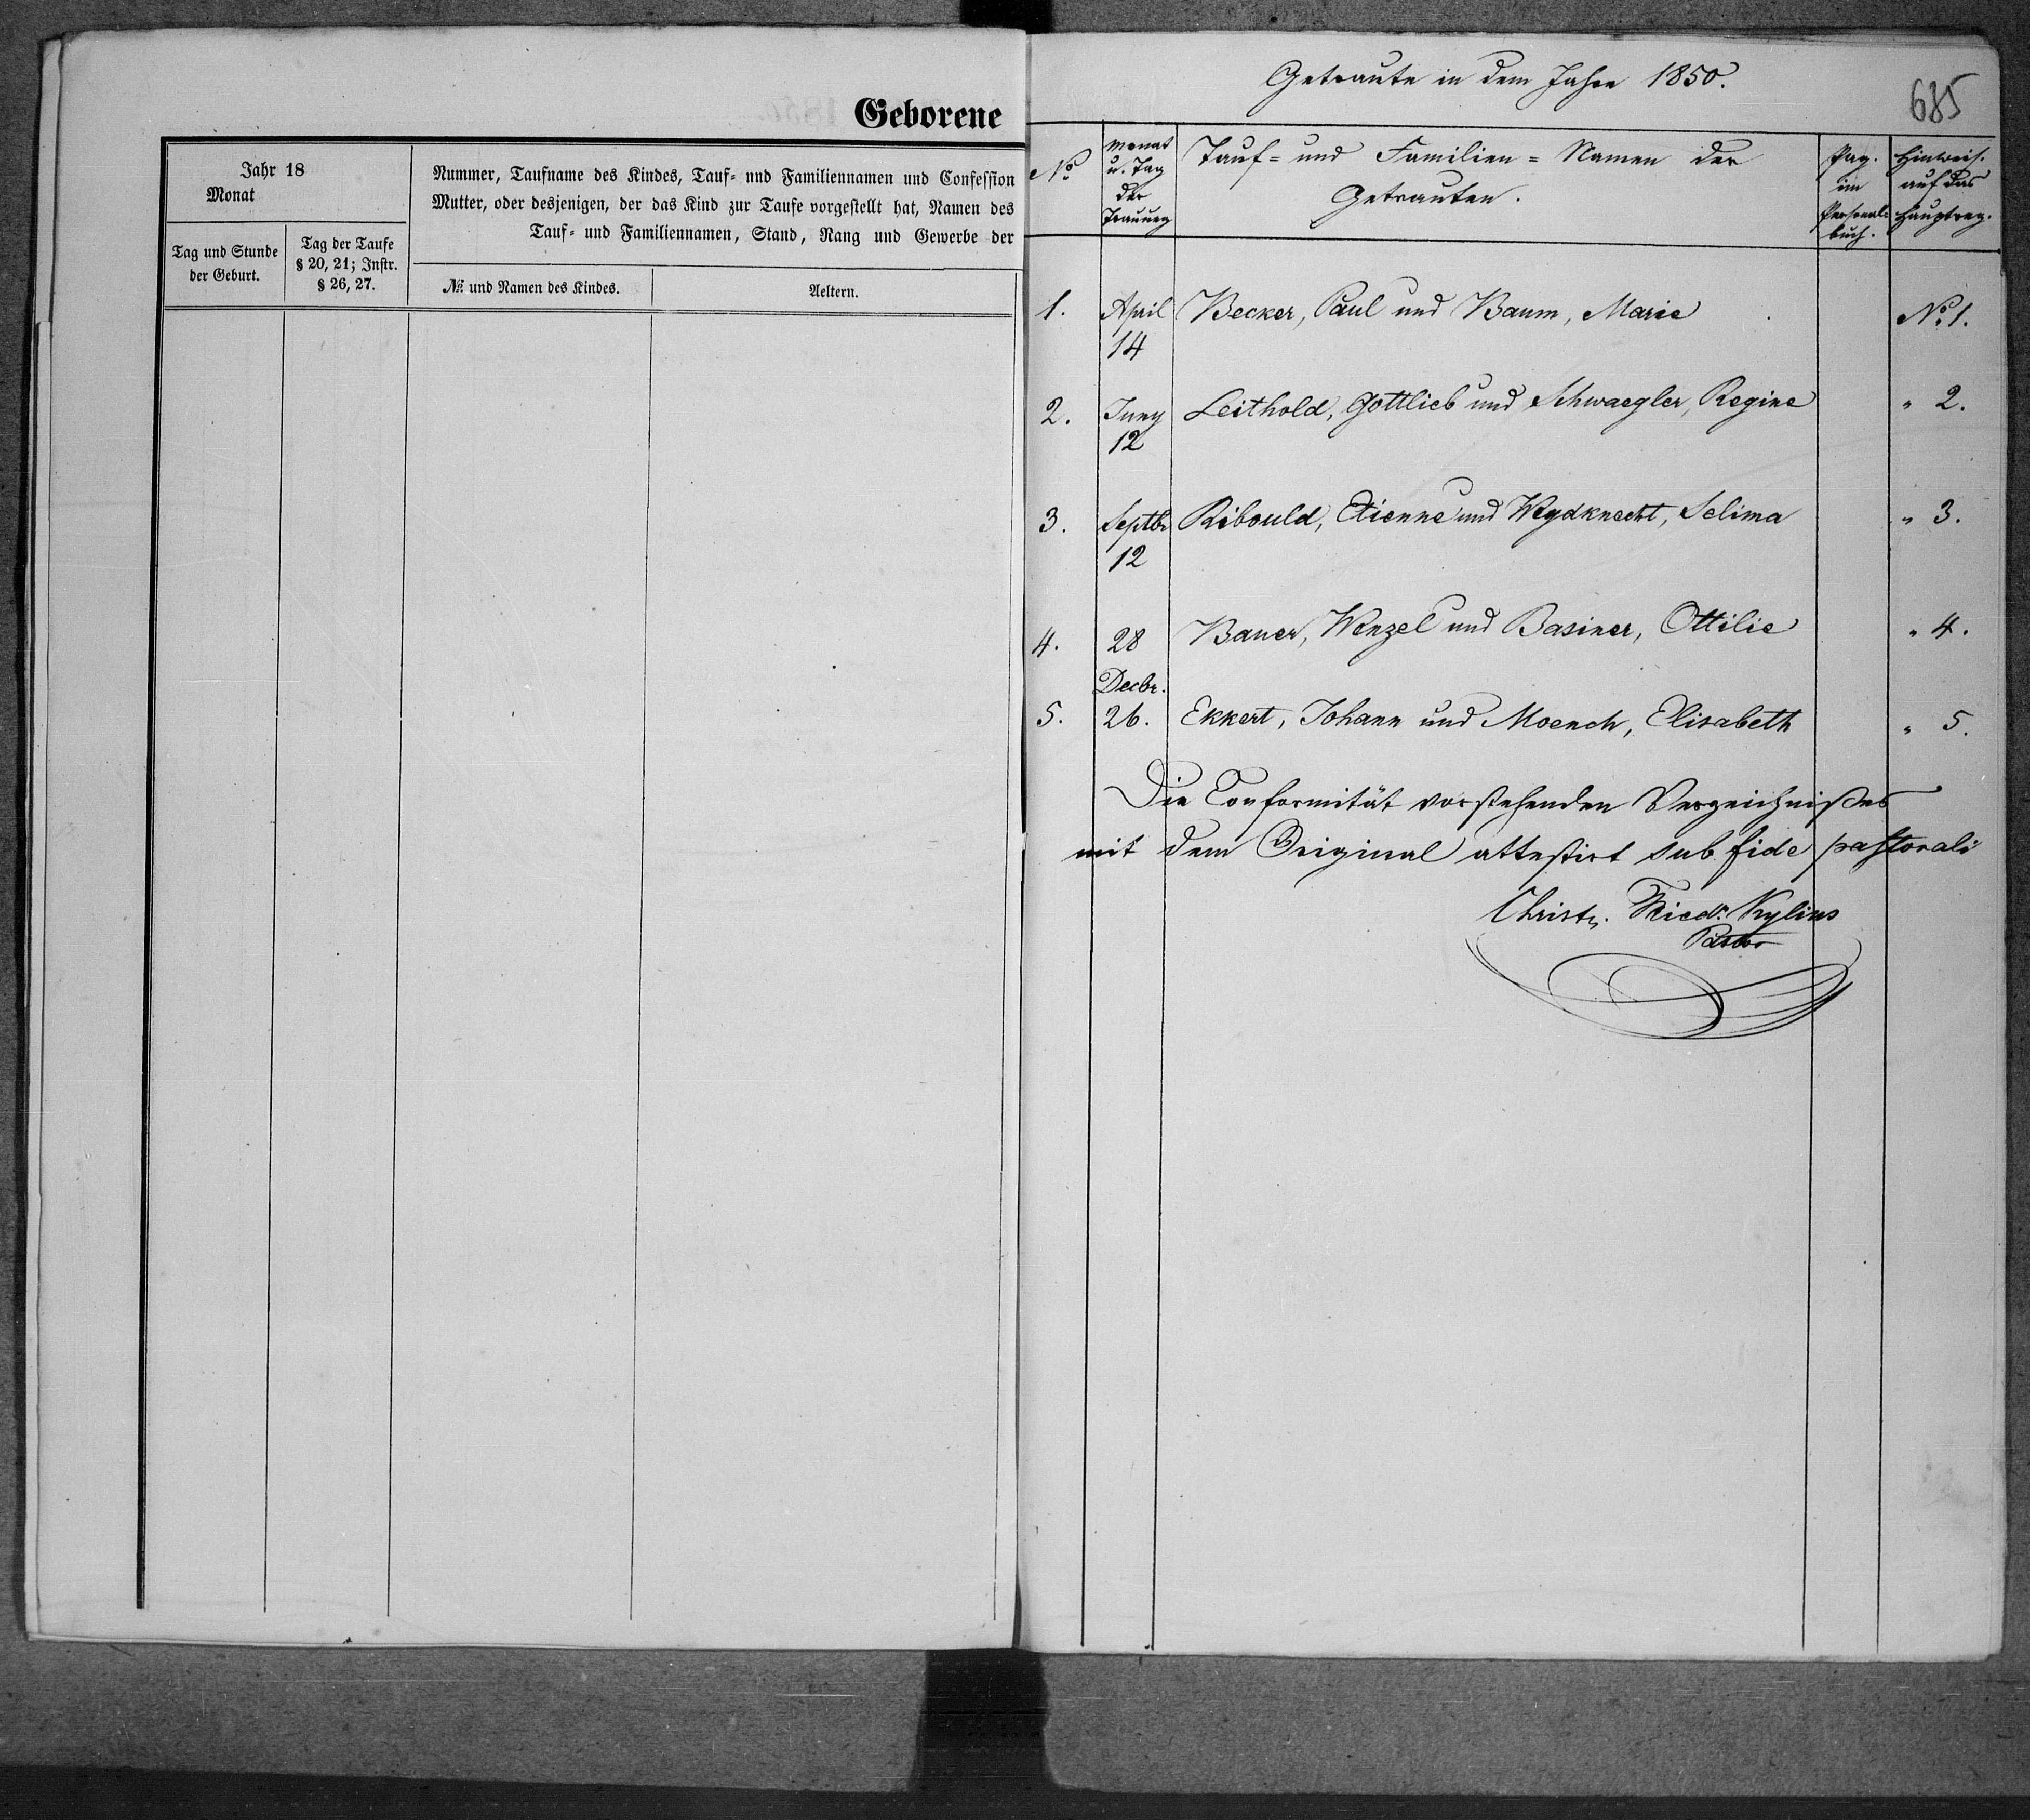 Geborene
Jahr 18
Monat
Tag und Stunde
der Geburt.
Tag der Taufe
§ 20, 21; Instr.
§ 26, 27.
Nummer, Taufname des Kindes, Tauf- und Familiennamen und Confession
Mutter, oder desjenigen, der das Kind zur Taufe vorgestellt hat, Namen des
Tauf- und Familiennamen, Stand, Rang und Gewerbe der
№ und Namen des Kindes.
Aeltern.
Getraute in dem Jahre 1850.
685
№
Monat
u. Tag
der
Trauung
Tauf- und Familien-Namen der
Getrauten.
Pag.
im
Personal-
buch.
Hinweis.
auf das
Hauptreg.
1. April 14 Becker, Paul und Baum, Marie № 1.
2. Juny 12 Leithold, Gottlieb und Schwaegler, Regine " 2.
3. Septbr 12 Ribould, Etienne und Weydknecht, Selima " 3.
4. 28 Bauer, Wenzel und Basiner, Ottilie " 4.
5. Decbr. 26. Ekkert, Johann und Moench, Elisabeth " 5.
Die Conformität vorstehenden Verzeichnißes
mit dem Original attestirt sub fide pastorali
Christn. Friedr. Kylius
Pastor